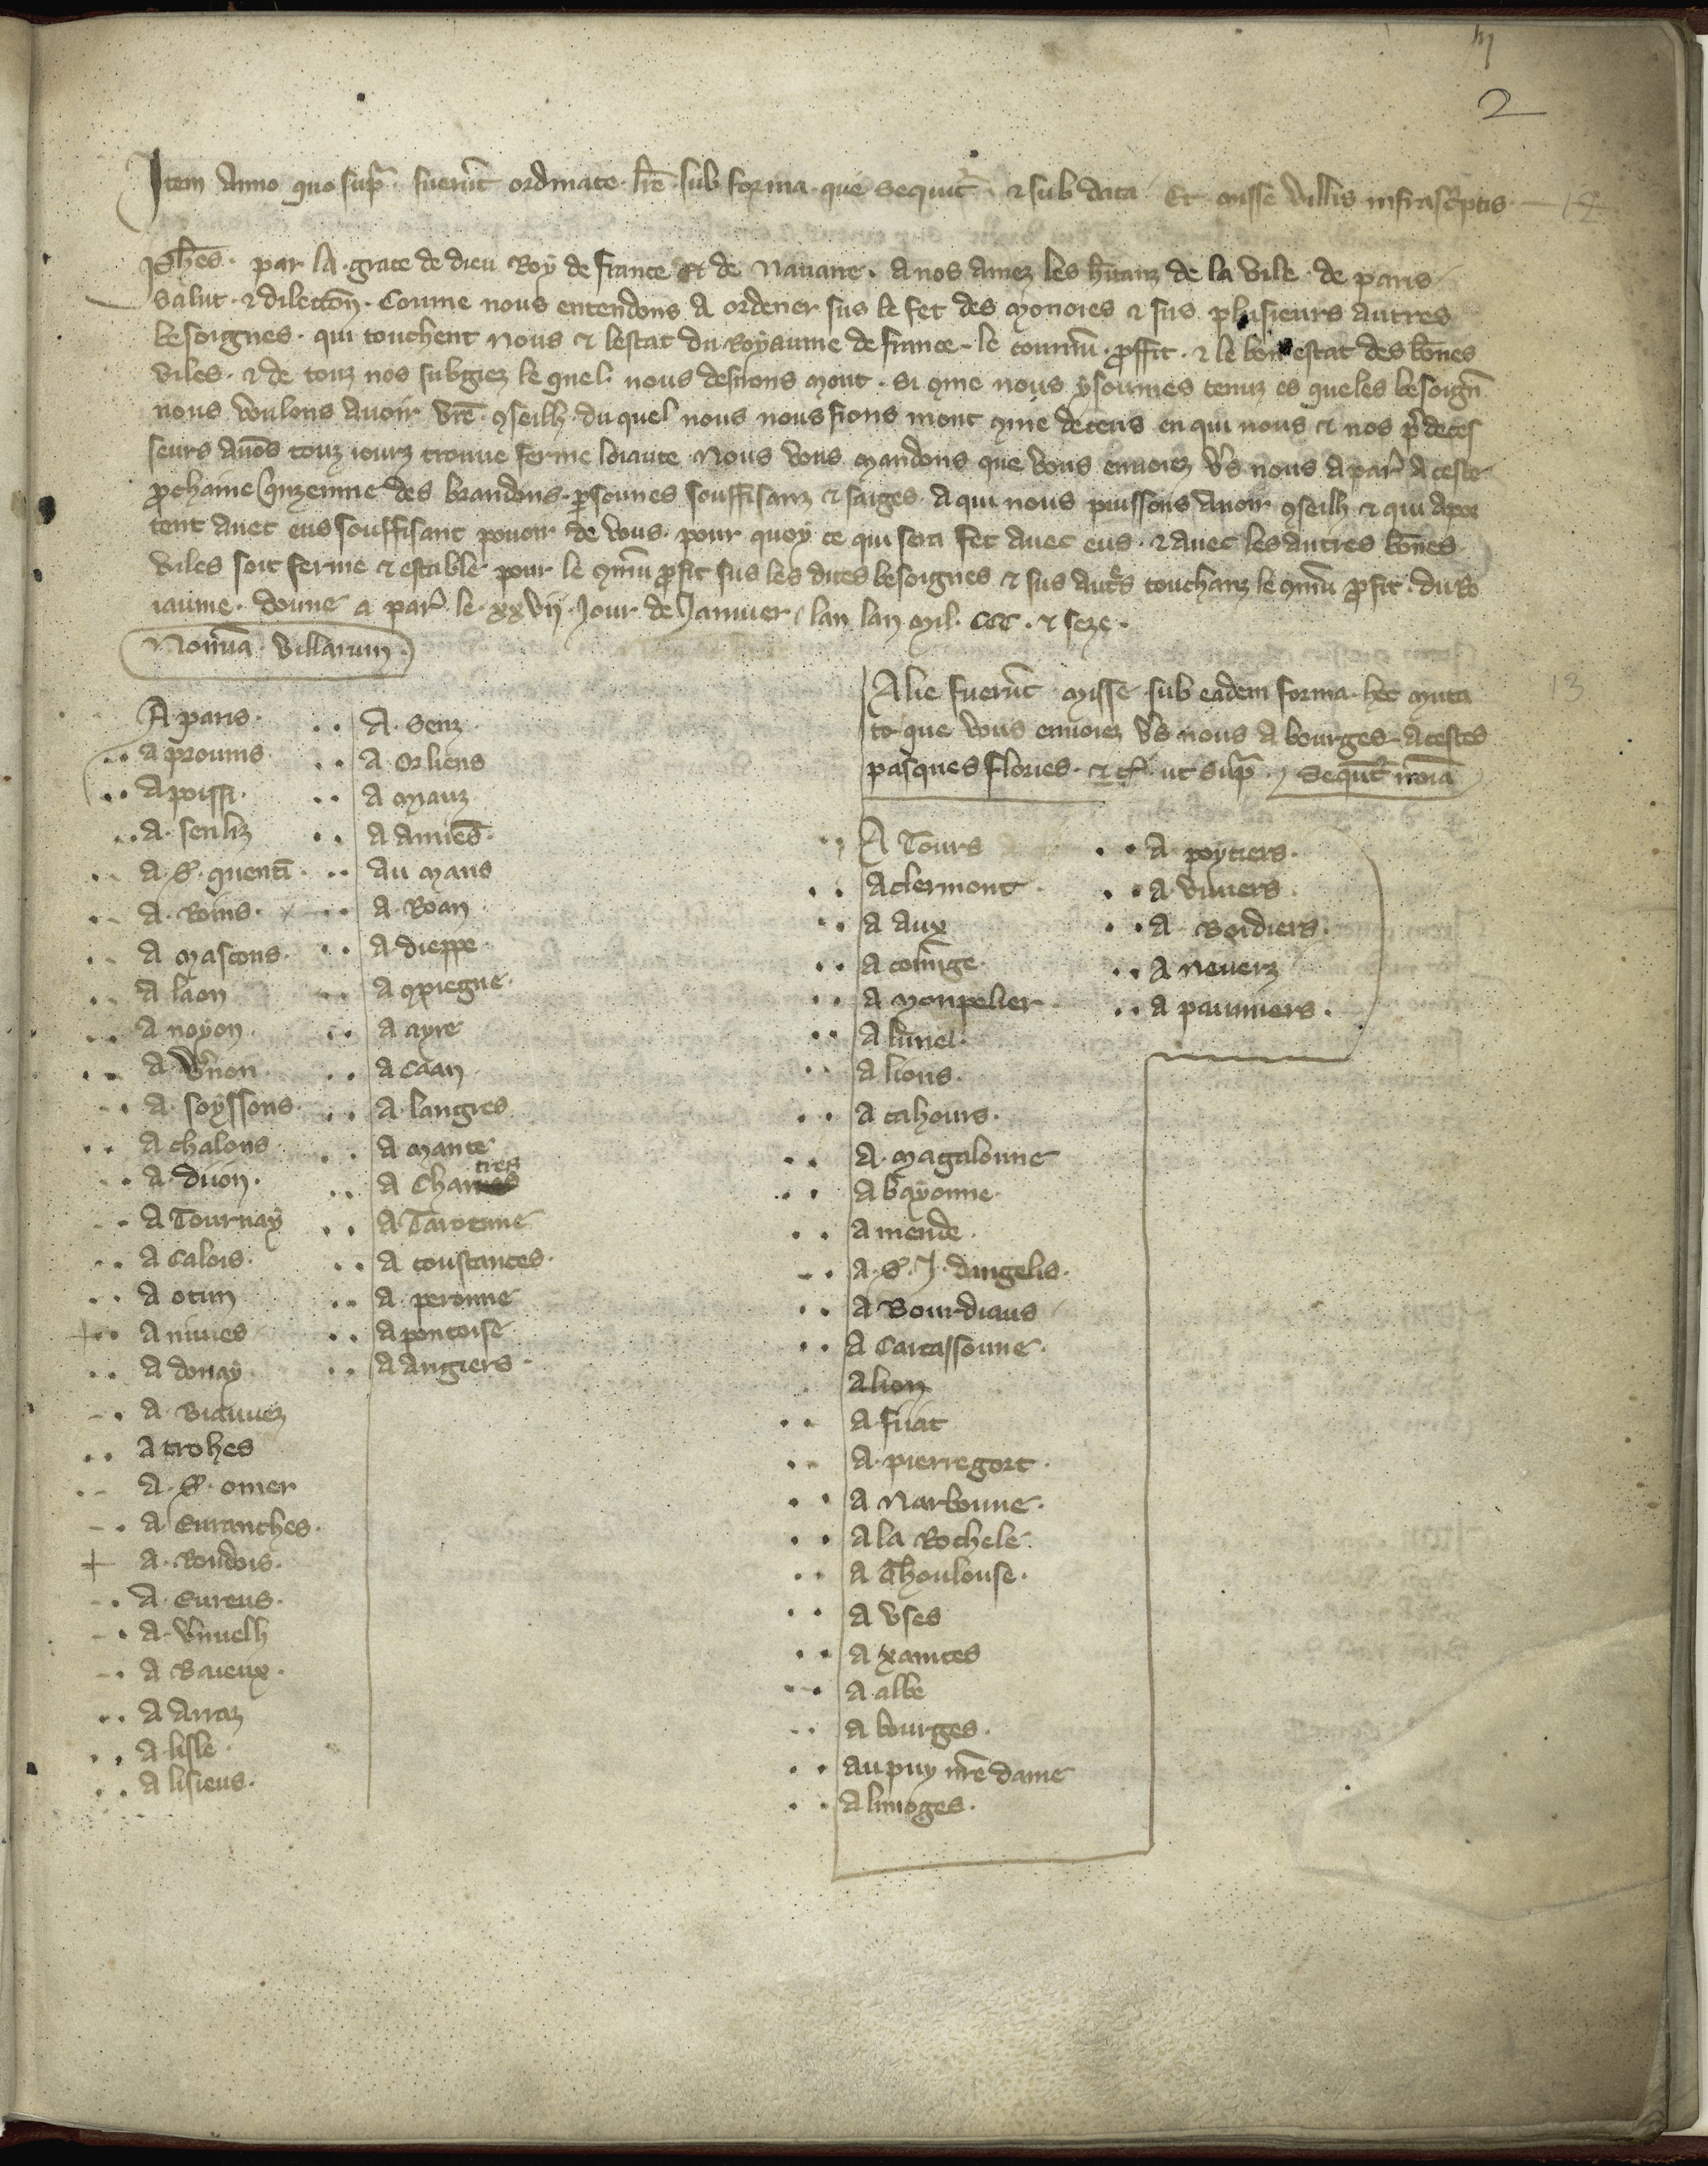 2
Item Anno quo supra fuerunt ordinate lre sub forma que sequitr & sub data Et misse villis infrascriptis 12
Johes par la grace de dieu Roy de france Et de Navarre A nos amez les hitanz de la vile de paris
Salut & dilection Comme nous entendons a ordener sus le fet des monoies & sus plusieurs autres
besoignes qui touchent nous & lestat du Royaume de france le commu proffit & le bon estat des bones
viles & de touz nos subgiez le quel nous desirons mout si come nous y soumes tenuz es queles besoign
nous voulons avoir vre conseilh du quel nous nous fions mout come de ceus en qui nous & nos predeces
seurs avons touz iourz trouve ferme loiaute Nous vous mandons que vous envoiez vers nous a par a ceste
prochaine quzeinne des brandons personnes souffisanz & saiges a qui nous puissons avoir conseilh & qui apor
tent avec eus souffisant pouoir de vous pour quoy ce qui sera fet avec eus & avec les autres bones
viles soit ferme & estable pour le comun profit sus les dites besoignes & sus autres touchanz le comun profit du Ro
iaume donne a par le xxvij jour de Janvier lan lan mil ccc & seze
Nomina villarum
A paris
a provins
A poissi
a senliz
a S. quenti
a Roins
a mascons
a laon
a noyon
a vernon
a soyssons
a chalons
a dijon
a Tournay
a Calois
a otun
a nivies
a douay
a Biauvez
a trohes
a S. omer
a Euranches
a Roudois
a Eureus
a vernuelh
a Baieux
a Arraz
a lisle
a lisieus
A Senz
a Orliens
a Mauz
a Amies
au mans
a Roan
a dieppe
a compiegne
a ayre
a Caan
a langres
a mante
a Chartres
a Taroenne
a coustances
a peronne
a pontoise
a angiers
Alie fuerunt misse sub eadem forma hoc muta 13
to que vous envoiez vers nous a bourges a cestes
pasques flories & cet ut supra Sequtr noia
A Tours
a clermont
a aux
a cominge
a monpelier
a lunel
a lions
a cahours
a magalonne
a bayonne
a mende
a S. J. dangelis
a Bourdiaus
a Carcassonne
a lion
a fijat
a pierregort
a Narbonne
a la Rochele
a Thoulouse
a vses
a xainctes
a albe
a bourges
au puy nre dame
a limoges
a poytiers
a viviers
a Bordiers
a Neverz
a paumiers